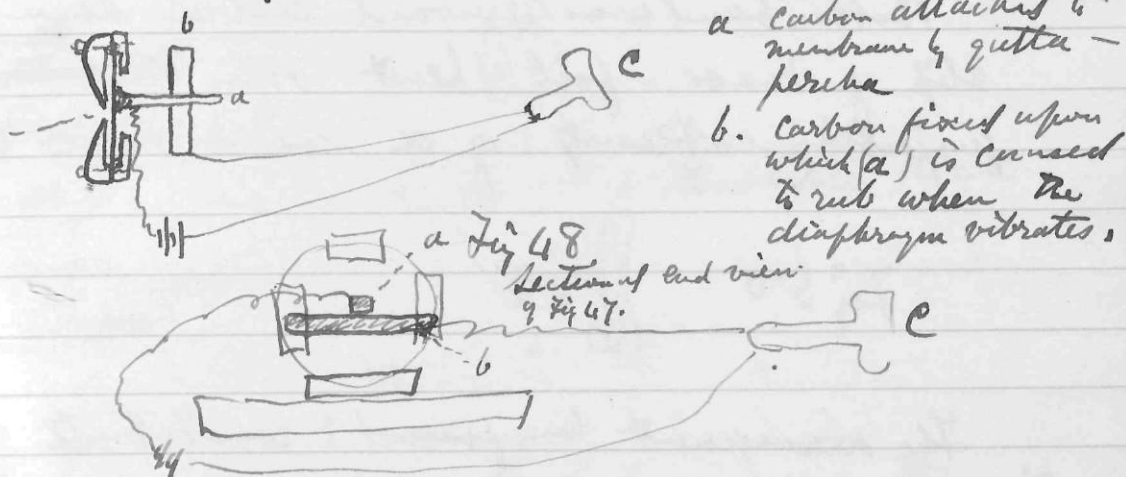 b
a
C
a carbon attached to
membrane by gutta-
percha
b. Carbon fixed upon
which (a) is caused
to rub when the
diaphragm vibrates.
a Fig 48
Sectional end view
of Fig 47.
C
b